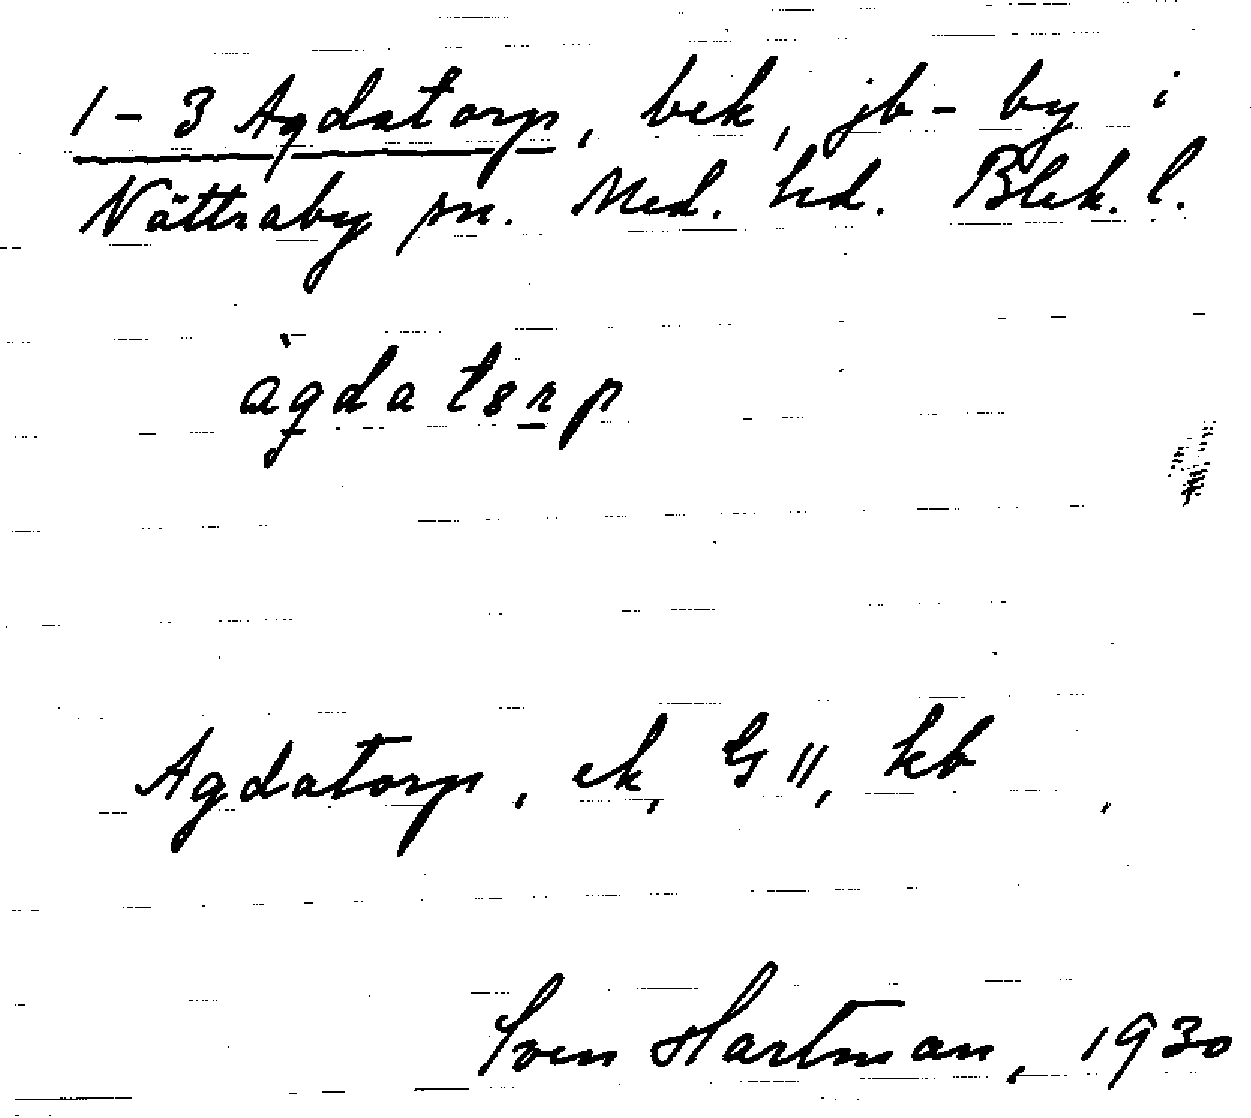 1-3 Agdatorp, bek, jb-by i
Nättraby sn. Med. hd. Blek. l.
àgdatsrp
Agdatorp, ek, G II, kb
Sven Hartman, 1930